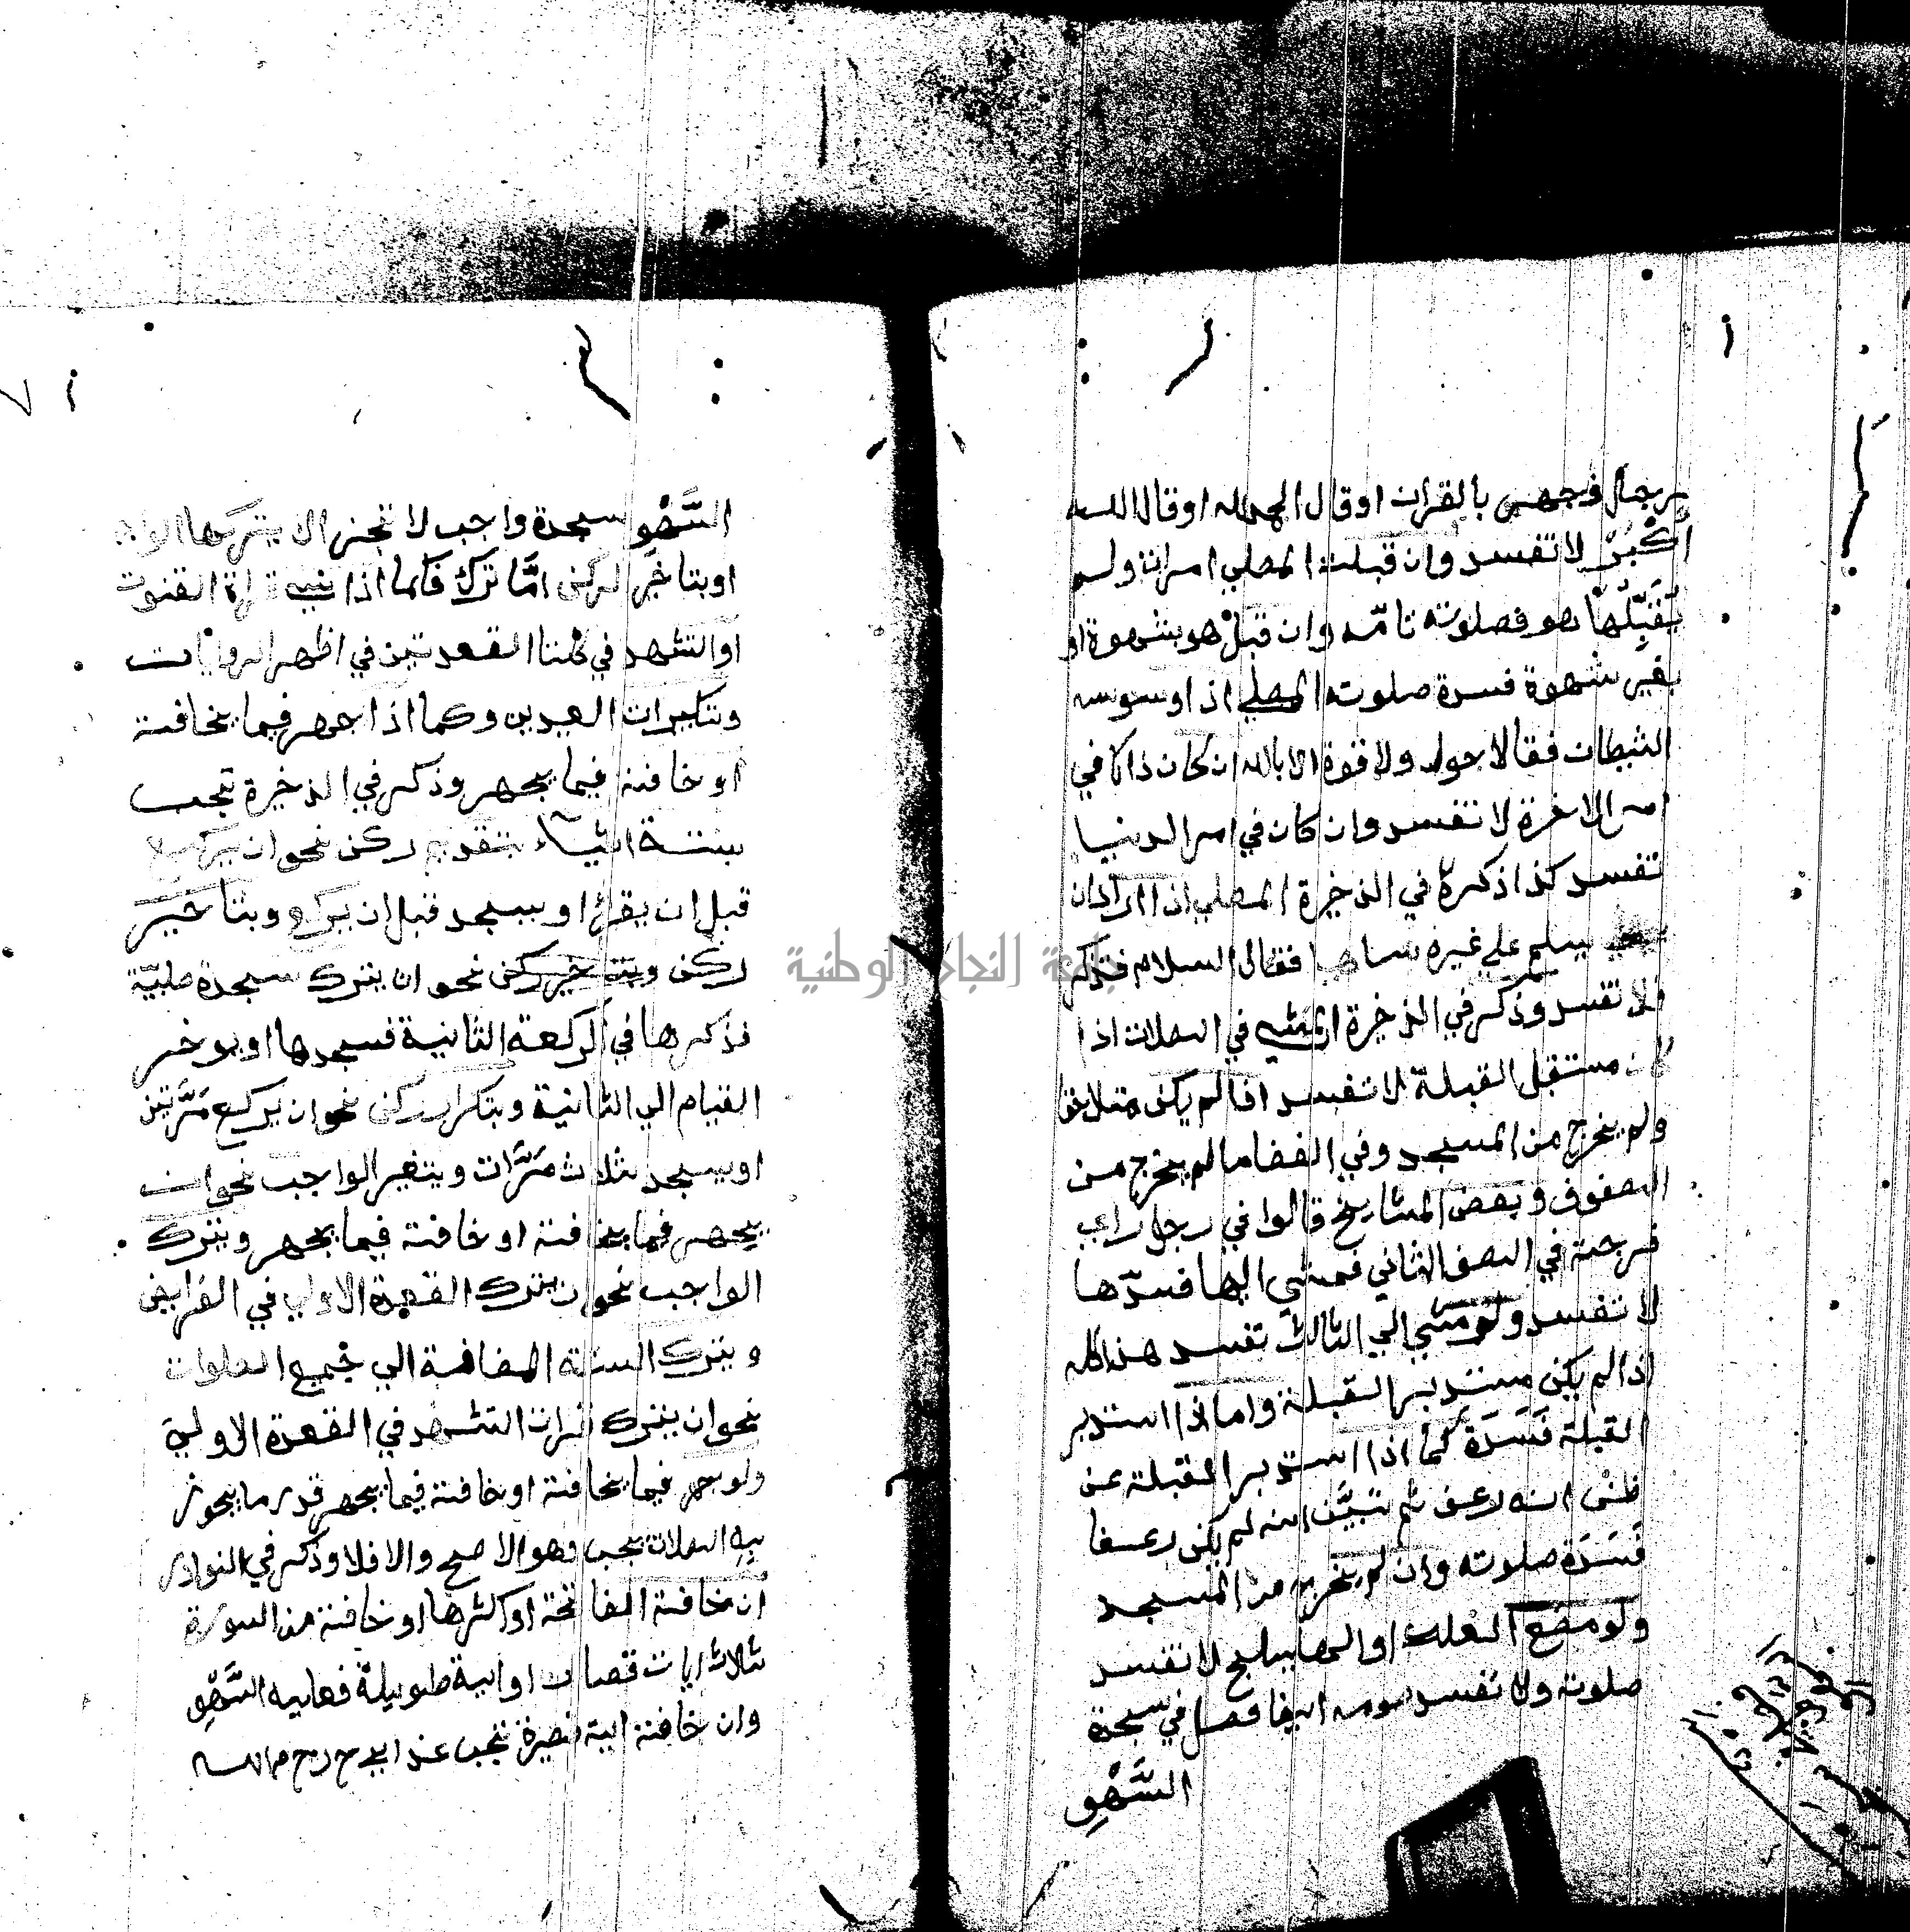 برجال فجهر بالقران او قال الحمد لله او قال الله
اكْبَرْ لا تفسد وان قبلت المصلي امرات ولم
يُقَبِّلْهَا هو فصلوته تامّه وان قبل هو بشهوة او
بغير شهوة فسدة صلوته المصلي اذا وسوسه
الشيطان فقال لا حول ولا قوة الا بالله ان كان ذالك في
امر الاخرة لا تفسد وان كان في امر الدنيا
تفسد كذا ذكره في الذخيرة المصلي اذا اراد ان
يسلم علي غيره ساهيا فقال السلام فتذكر
فلا تفسد وذكر في الذخيرة المشي في الصلات اذا
كان مستقبل القبلة لا تفسد اذا لم يكن متلاحقا
ولم يخرج من المسجد وفي الفضا ما لم يخرج من
الصفوف وبعض المشايخ قالوا في رجل راي
فرجة في الصف الثاني فمشي اليها فسدّها
لا تفسد ولو مشي الي الثالث تفسد هذا كله
اذا لم يكن مستدبر القبلة واما اذا استدبر
القبلة فَسَدَة كما اذا استدبر القبلة عن
ظن انه رعف ثم تبيَّن انه لم يكن رعفا
فَسَدَة صلوته وان لم يخرج من المسجد
ولو مضغ العلك او الهليلج لا تفسد
صلوته ولا تفسد صومه ايضا فصل في سجدة
السَّهْوِ
السَّهْوِ سجدة واجب لا تجب الا بترك الواجب
او بتاخير الركن امّا ترك فكما اذا نسي قراة القنوت
او التشهد في كلتا القعدتين في اظهر الروايات
وتكبيرات العيدين وكما اذا جهر فيما يخافت
او خافت فيما يجهر وذكر في الذخيرة تجب
بستة اشياء بتقديم ركن نحو ان يركع
قبل ان يقرا او يسجد قبل ان يركع وبتاخير
ركن نحو ان يترك سجدة صلبيّة
فذكرها في الركعة الثانية فسجدها او يوخر
القيام الي الثانية وبتكرار ركن نحو ان يركع مَرَّتين
او يسجد ثلاث مَرَّات وبتغير الواجب نحو ان
يجهر فيما يخافت او خافت فيما يجهر وبترك
الواجب نحو ان يترك القعدة الاولي في الفرايض
وبترك السنة المضافة الي جميع الصلوات
نحو ان يترك قرات التشهد في القعدة الاولي
ولو جهر فيما يخافت او خافت فيما يجهر قدر ما يجوز
بِهِ الصلات يجب وهو الاصح والا فلا وذكر في النوادر
ان خافت الفاتحة او اكثرها او خافت من السورة
ثلاث ايات قصار او اية طويلة فعليه السَّهْوِ
وان خافت اية قصيرة تجب عند ابي ح رحمه الله
جامعة النجاح الوطنية